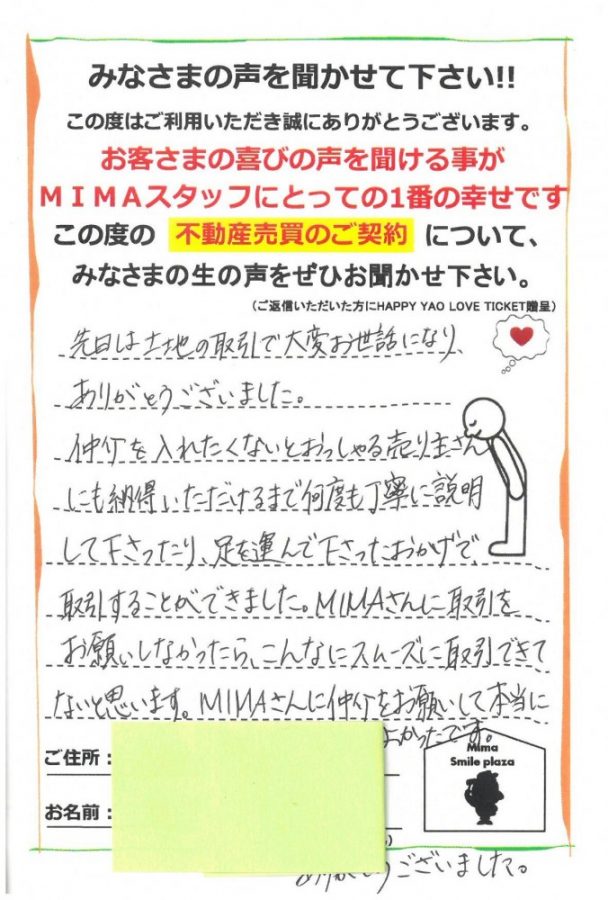 みなさまの声を聞かせて下さい!!
この度はご利用いただき誠にありがとうございます。
お客さまの喜びの声を聞ける事が
MIMAスタッフにとっての1番の幸せです
この度の 不動産売買のご契約 について、
みなさまの生の声をぜひお聞かせ下さい。
(ご返信いただいた方にHAPPY YAO LOVE TICKET贈呈)
先日は土地の取引で大変お世話になり、
ありがとうございました。
仲介を入れたくないとおっしゃる売り主さん
にも納得いただけるまで何度も丁寧に説明
して下さったり、足を運んで下さったおかげで、
取引することができました。MIMAさんに取引を
お願いしなかったら、こんなにスムーズに取引できて
ないと思います。MIMAさんに仲介をお願いして本当に
よかったです。
Mima
Smile plaza
ご住所：
お名前：
ありがとうございました。